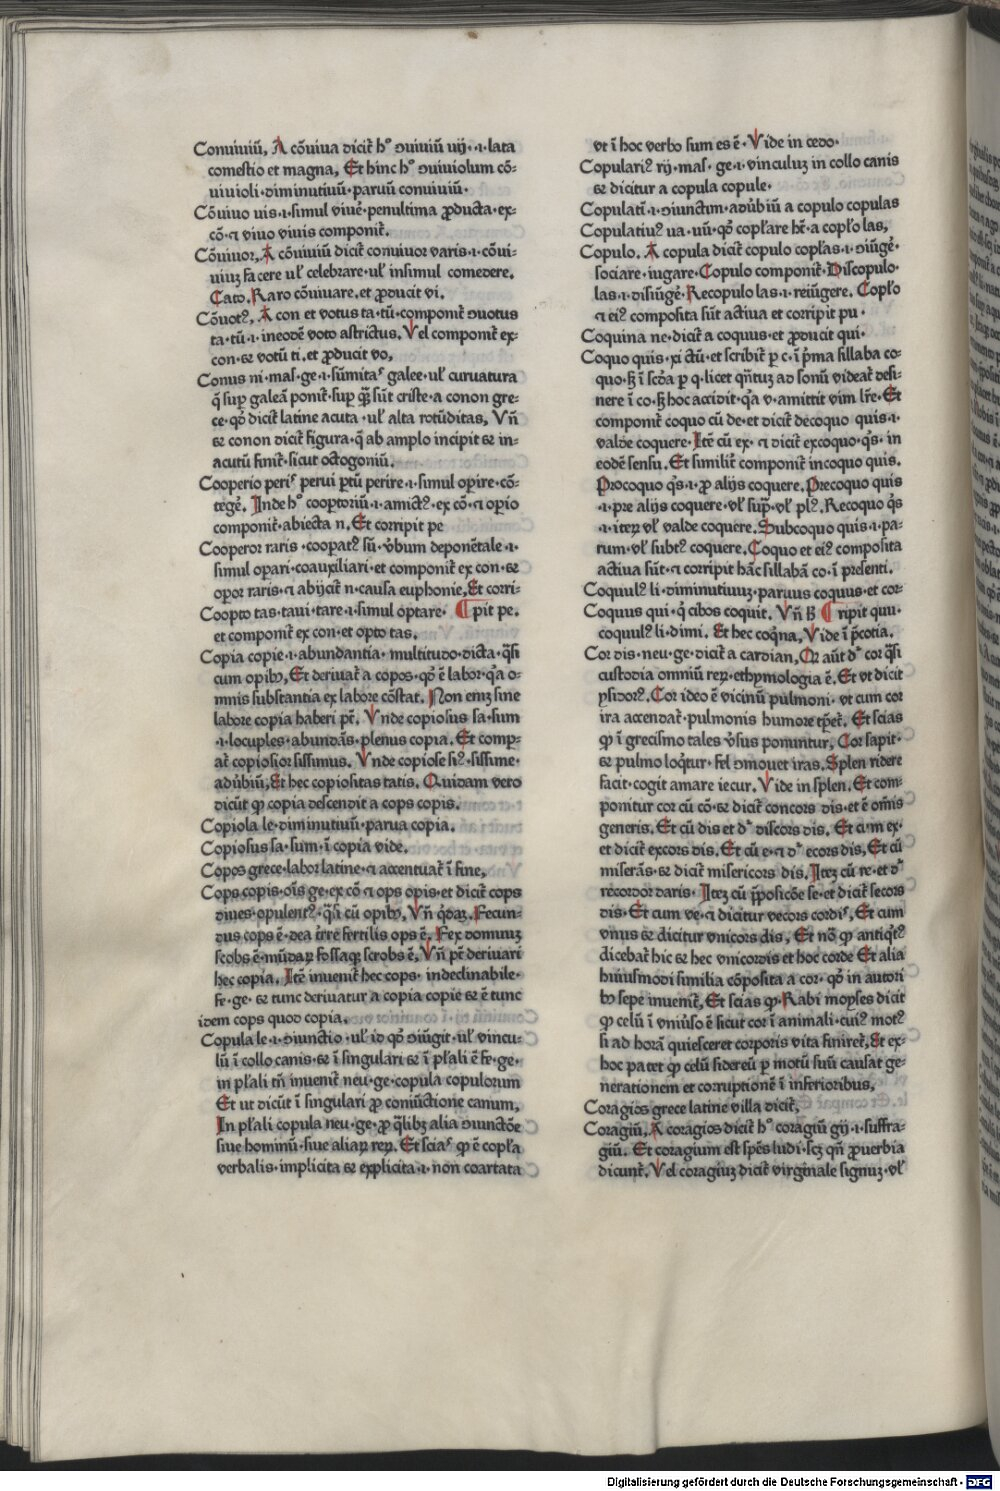 Conuiuiū, A cōuiua dicit̄ h° ɔuiuiū uij·ı·lata
comestio et magna, Et hinc h° ɔuiuiolum cō⸗
uiuioli·diminutiuū·paruū conuiuiū·
Cōuiuo uis·ı·simul viuē·penultima ꝓducta·ex⸗
cō·⁊ viuo viuis componit̄.
Cōuiuor, A cōuiuiū dicit̄ conuiuor varis·ı·cōui⸗
uiuꝫ facere ul̄ celebrare·ul̄ insimul comedere.
Cato. Raro cōuiuare.et ꝓducit vi.
Cōuotꝰ, A con et votus ta·tū·componit̄ ɔuotus
ta·tū·ı·ineodē voto astrictus. Vel componit̄ ex
con·et votū ti.et ꝓducit vo,
Conus ni·mas·ge·ı·sūmitaˢ galee·ul̄ curuatura
q̄ suꝑ galeā ponit̄·suꝑ qͣꝫ sūt criste·a conon gre⸗
ce·qd̄ dicit̄ latine acuta·ul̄ alta rotūditas, Vn̄
et conon dicit̄ figura·q̄ ab amplo incipit et in⸗
acutū finit̄·sicut octogoniū.
Cooperio periˢ perui ꝑtū perire·ı·simul oꝑire·cō⸗
tegē. Inde h° cooꝑtoriū·ı·amictꝰ·ex cō·⁊ oꝑio
componit̄·abiecta n. Et corripit pe
Cooperor raris·cooꝑatꝰ sū·v̄bum deponētale·ı·
simul oꝑari·coauxiliari·et componit̄ ex con·et
oꝑor raris·⁊ abijcit̄ n·causa euphonie, Et corri⸗
Coopto tas·taui·tare·ı·simul optare· ¶ pit pe.
et componit̄ ex con·et opto tas.
Copia copie·ı·abundantia·multitudo·dicta·q̄si
cum opibꝰ, Et deriuat̄ a copos·qd̄ ē labor·qͣ o⸗
mnis substantia ex labore cōstat. Non eniꝫ sine
labore copia haberi pt̄. Vnde copiosus sa·sum
·ı·locuples·abundās·plenus copia. Et compꝰ⸗
at̄ copiosior sissimus. Vnde copiose siꝰ·sissime·
aduūbiū, Et hec copiositas tatis. Quidam vero
dicūt ꝙ copia descendit a cops copis.
Copiola le·diminutiuū·parua copia.
Copiosus sa·sum·ī copia vide.
Copos grece·labor latine·⁊ accentuat̄ ī fine,
Cops copis·oīs ge·ex cō ⁊ ops opis·et dicit̄ cops
diues·opulentꝰ·q̄si cū opibꝰ, Vn̄ qͥdaꝫ. Fecun⸗
dus cops ē·dea t̄rre fertilis ops ē. Fex domuuꝫ
scobs ē·mūdaꝝ fossaqꝫ scrobs ē, Vn̄ pt̄ deriuari
hec copia. Itē inuenit̄ hec cops·indeclinabile·
fe·ge·et tunc deriuatur a copia copie et ē tunc
idem cops quod copia.
Copula le·ı·ɔiunctio·ul̄ id qd̄ ɔiūgit·ul̄ vincu⸗
lū ī collo canis·et ī singulari et ī pl̄ali ē fe·ge·
in pl̄ali tn̄ inuenit̄ neu·ge·copula copulorum
Et ut dicūt ī singulari ꝓ coniūctione canum,
In pl̄ali copula neu·ge·ꝓ q̄libꝫ alia ɔiunctōe
siue hominū·siue aliaꝝ reꝝ. Et sciaˢ ꝙ ē copl̄a
verbalis·implicita et explicita·ı·non coartata
vt ī hoc verbo sum es ē· Vide in cedo·
Copulariꝰ rij·mas·ge·ı·vinculuꝫ in collo canis
et dicitur a copula copule·
Copulatī·ı·ɔiunctim·aduūbiū a copulo copulas
Copulatiuꝰ ua·uū·qd̄ copl̄are hꝫt̄·a copl̄o las,
Copulo. A copula dicit̄ copulo copl̄as·ı·ɔiūgē·
sociare·iugare· Copulo componit̄· Discopulo·
las·ı·disiūgē· Recopulo las·ı·reiūgere. Copl̄o
⁊ eiꝰ composita sūt actiua et corripit pu·
Coquina ne·dicit̄ a coquus·et ꝓducit qui·
Coquo quis·xi ctū·et scribit̄ ꝑ c·ī pͥma sillaba co⸗
quo·sꝫ ī scd̄a ꝑ q·licet qn̄tuꝫ ad sonū videat̄ desi⸗
nere ī co·sꝫ hoc accidit·qͣ v·amittit vim lr̄e·Et
componit̄ coquo cū de·et dicit̄ decoquo quis·ı·
valde coquere· Itē cū ex·⁊ dicit̄ excoquo·qͥs·in
eodē sensu. Et similit̄ componit̄ incoquo quis.
Procoquo qͥs·ı·ꝓ alijs coquere. Precoquo quis
·ı·pre alijs coquere·vl̄ supͣ·vl̄ plꝰ. Recoquo qͥs
·ı·iteꝝ vl̄ valde coquere. Subcoquo quis·ı·pa⸗
rum·vl̄ subtꝰ coquere. Coquo et eiꝰ composita
actiua sūt·⁊ corripit hāc sillabā co·ī presenti.
Coquulꝰ li·diminutiuuꝫ·paruus coquus·et cor⸗
Coquus qui·qͥ cibos coquit. Vn̄ ꝶ ¶ ripit quu·
coquulꝰ li·dimi. Et hec coqͥna, Vide ī p̄cotia.
Cor dis·neu·ge·dicit̄ a cardian, Cor aūt dꝛ̄ cor q̄si
custodia omniū reꝝ·ethymologia ē. Et vt dicit
ysidorꝰ. Cor ideo ē vicinū pulmoni·vt cum cor
ira accendat̄·pulmonis humore tꝑet̄. Et scias
ꝙ ī grecismo tales v̄sus ponuntur. Cor sapit·
et pulmo loqͥtur·fel ɔmouet iras. Splen ridere
facit·cogit amare iecur. Vide in splen. Et com⸗
ponitur cor cū cō·et dicit̄ concors dis·et ē om̄is
generis. Et cū dis et dꝛ̄ discors dis. Et cum ex·
et dicit̄ excors dis. Et cū e·⁊ dꝛ̄ ecors dis, Et cū
miserās·et dicit̄ misericors dis. Iteꝫ cū re·et dꝛ̄
recordor daris· Iteꝫ cū p̄posicōe se·et dicit̄ secors
dis·Et cum ve·⁊ dicitur vecors cordiˢ, Et cum
vnus et dicitur vnicors dis, Et nō ꝙ antiqͥtꝰ
dicebat̄ hic et hec vnicordis et hoc corde Et alia
huiusmodi similia cōposita a cor·qd̄ in autori
bꝰ sepe inuenit̄, Et scias ꝙ·Rabi moyses dicit
ꝙ celū ī vniūso ē sicut cor ī animali·cuiꝰ motꝰ
si ad horā quiesceret corporis vita finiret̄, Et ex⸗
hoc patet ꝙ celū sidereū ꝑ motū suū causat ge⸗
nerationem et corruptionē ī inferioribus,
Coragios grece latine villa dicit̄,
Coragiū, A coragios dicit̄ h° coragiū gij·ı·suffra⸗
giū. Et coragium est spēs ludi·scꝫ qn̄ ꝓuerbia
dicunt̄. Vel coragiuꝫ dicit̄ virginale signuꝫ·vl̄
Digitalisierung gefördert durch die Deutsche Forschungsgemeinschaft · DFG